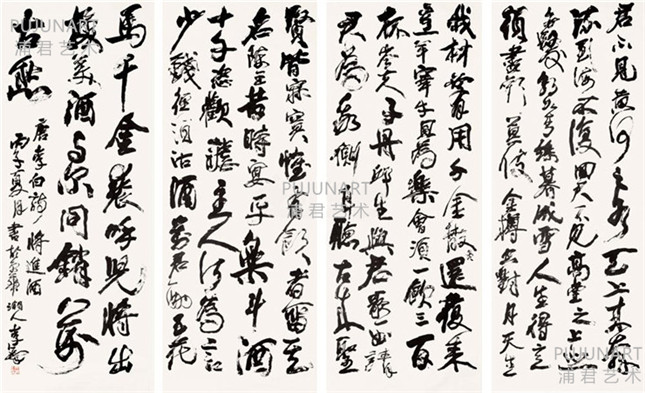 君不见黄河之水天上来奔
流到海不復回又不见高堂之上
朝如青絲暮成雪人生得意
須盡歡莫使金樽空對月天生
我材必有用千金散盡還復来
烹羊宰牛且為樂會須一飲三百
杯岑夫子丹邱生與君歌一曲請
君為我側耳聽古来聖
賢皆寂寞惟有飲者留其
名陳王昔時宴平樂斗酒
十千恣歡謔主人何為言
少錢徑須沽酒對君酌五花
馬千金裘呼兒將出
換美酒与尔同銷萬
古愁
唐李白詩將進酒
丙子夏月書於
PUJUNART
浦君艺术
PUJUNART
浦君艺术
PUJUNART
浦君艺术